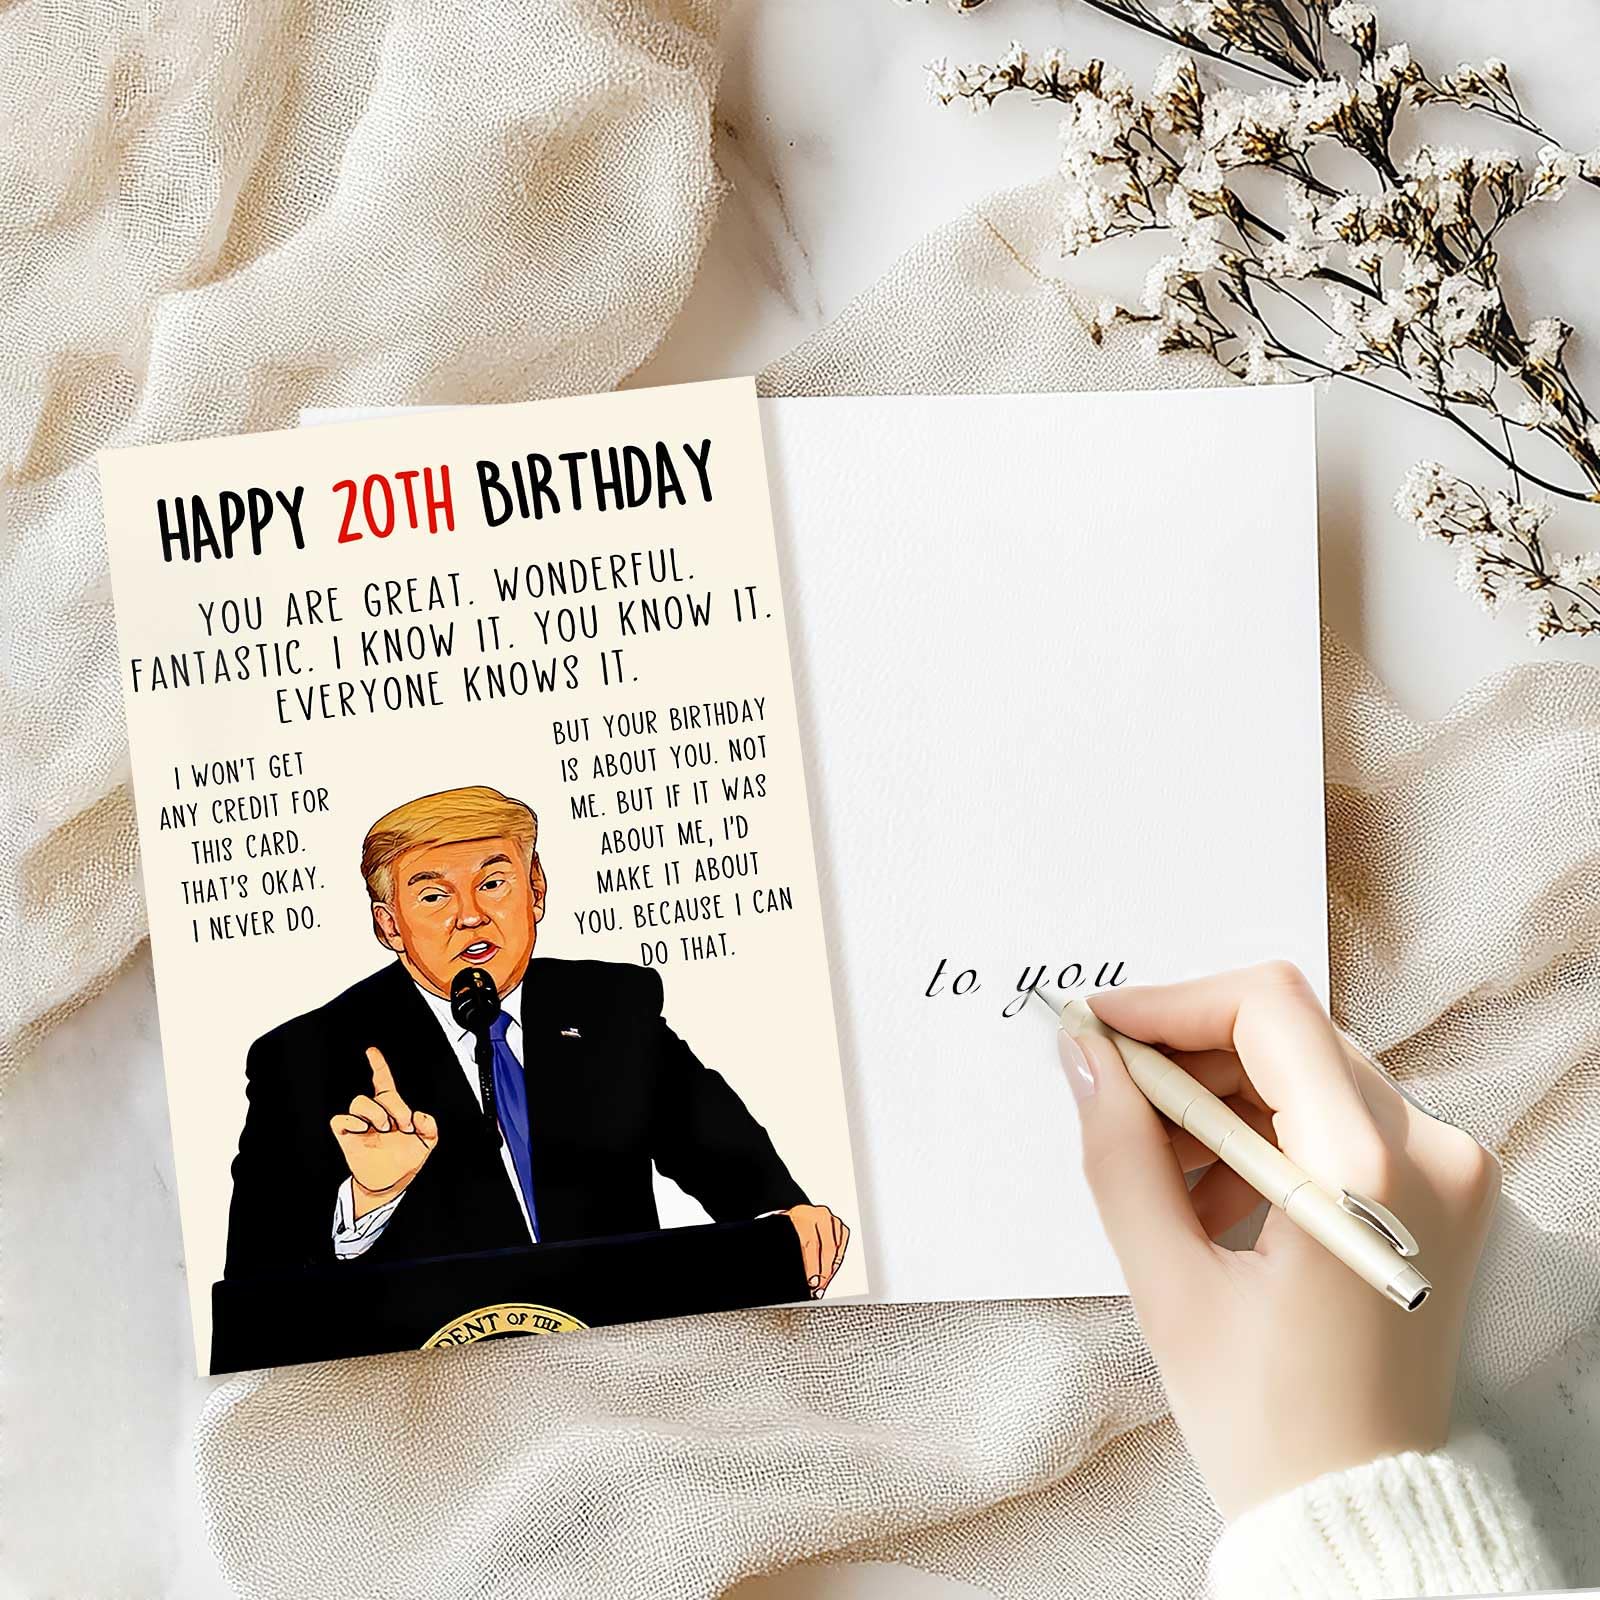 HAPPY 20TH BIRTHDAY
YOU ARE GREAT. WONDERFUL.
FANTASTIC. I KNOW IT. YOU KNOW IT.
EVERYONE KNOWS IT.
I WON'T GET
ANY CREDIT FOR
THIS CARD.
THAT'S OKAY.
I NEVER DO.
BUT YOUR BIRTHDAY
IS ABOUT YOU. NOT
ME. BUT IF IT WAS
ABOUT ME, I'D
MAKE IT ABOUT
YOU. BECAUSE I CAN
DO THAT.
DENT OF THE
to you